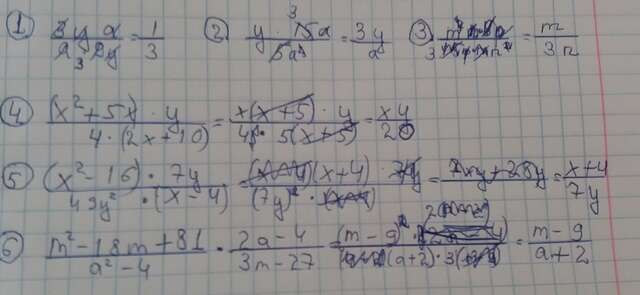 ① 3y a / a 9y = 1/3 ② y · 15a / 5a² = 3y/a ③ = m/3n
④ (x² + 5x) · y / 4 · (2x + 10) = x(x + 5) · y / 4 · 5(x + 5) = xy/20
⑤ (x² - 16) · 7y / 49y² · (x - 4) = (x - 4)(x + 4) · 7y / (7y)² · (x - 4) = 7xy + 28y = x + 4 / 7y
⑥ m² - 18m + 81 / a² - 4 · 2a - 4 / 3m - 27 = (m - 9)² / (a + 2) · 3 = m - 9 / a + 2